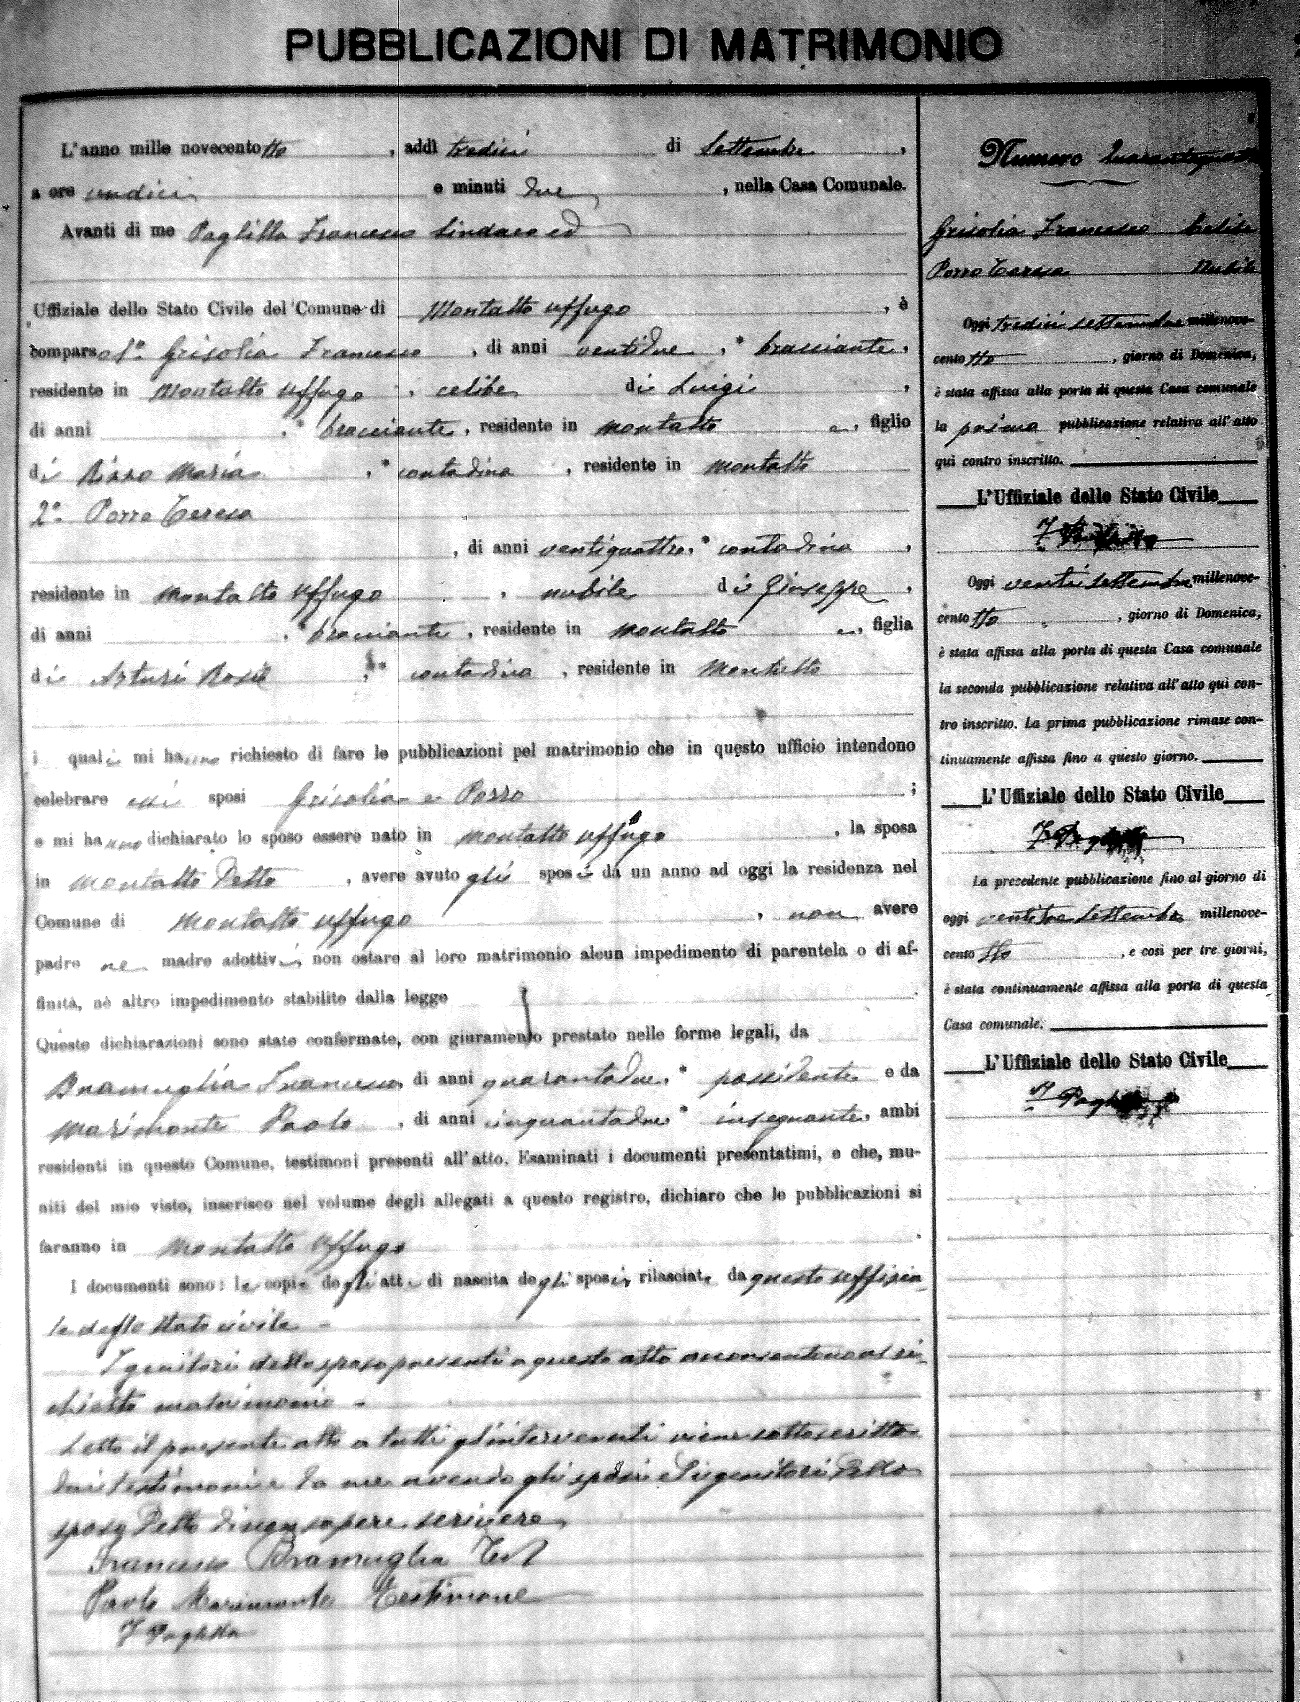 PUBBLICAZIONI DI MATRIMONIO
L'anno mille novecento otto, addì tredici di Settembre,
a ore undici e minuti due, nella Casa Comunale.
Avanti di me Francesco Sindaco ed
Uffiziale dello Stato Civile del Comune di Montalto Uffugo, è
compars 1º Grisolia Francesco, di anni ventidue, * bracciante,
residente in Montalto Uffugo, celibe di Luigi,
di anni , * bracciante, residente in Montalto e, figlio
di Rizzo Maria, * contadina, residente in Montalto
2º Porro Teresa
, di anni ventiquattro, * contadina,
residente in Montalto Uffugo, nubile di Giuseppe,
di anni , * bracciante, residente in Montalto e, figlia
di Arturi Rosa, * contadina, residente in Montalto
i quali mi hanno richiesto di fare le pubblicazioni pel matrimonio che in questo ufficio intendono
celebrare essi sposi Grisolia e Porro;
e mi hanno dichiarato lo sposo essere nato in Montalto Uffugo, la sposa
in Montalto Detto, avere avuto gli sposi da un anno ad oggi la residenza nel
Comune di Montalto Uffugo, non avere
padre ne madre adottivi, non ostare al loro matrimonio alcun impedimento di parentela o di af-
finità, nè altro impedimento stabilito dalla legge
Queste dichiarazioni sono state confermate, con giuramento prestato nelle forme legali, da
Bramuglia Francesco, di anni quarantadue, * possidente e da
Marimonte Paolo, di anni cinquantadue * insegnante, ambi
residenti in questo Comune, testimoni presenti all'atto. Esaminati i documenti presentatimi, e che, mu-
niti del mio visto, inserisco nel volume degli allegati a questo registro, dichiaro che le pubblicazioni si
faranno in Montalto Uffugo.
I documenti sono: le copie degli atti di nascita degli sposi, rilasciate da questo uffizia-
le dello stato civile -
I genitori dello sposo presenti a questo atto acconsentono al ri-
chiesto matrimonio -
Letto il presente atto a tutti gl'intervenuti viene sottoscritto
dai testimoni e da me avendo gli sposi e i genitori dello
sposo Detto di non sapere scrivere
Francesco Bramuglia Test
Paolo Marimonte Testimone
F
Numero
Grisolia Francesco Celibe
Porro Teresa Nubile
Oggi tredici settembre millenove-
cento otto, giorno di Domenica,
è stata affissa alla porta di questa Casa comunale
la prima pubblicazione relativa all'atto
quì contro inscritto.
L'Uffiziale dello Stato Civile
F
Oggi venti settembre millenove-
cento otto, giorno di Domenica,
è stata affissa alla porta di questa Casa comunale
la seconda pubblicazione relativa all'atto quì con-
tro inscritto. La prima pubblicazione rimase con-
tinuamente affissa fino a questo giorno.
L'Uffiziale dello Stato Civile
F
La precedente pubblicazione fino al giorno di
oggi ventitre Settembre millenove-
cento otto, e così per tre giorni,
è stata continuamente affissa alla porta di questa
Casa comunale.
L'Uffiziale dello Stato Civile
F